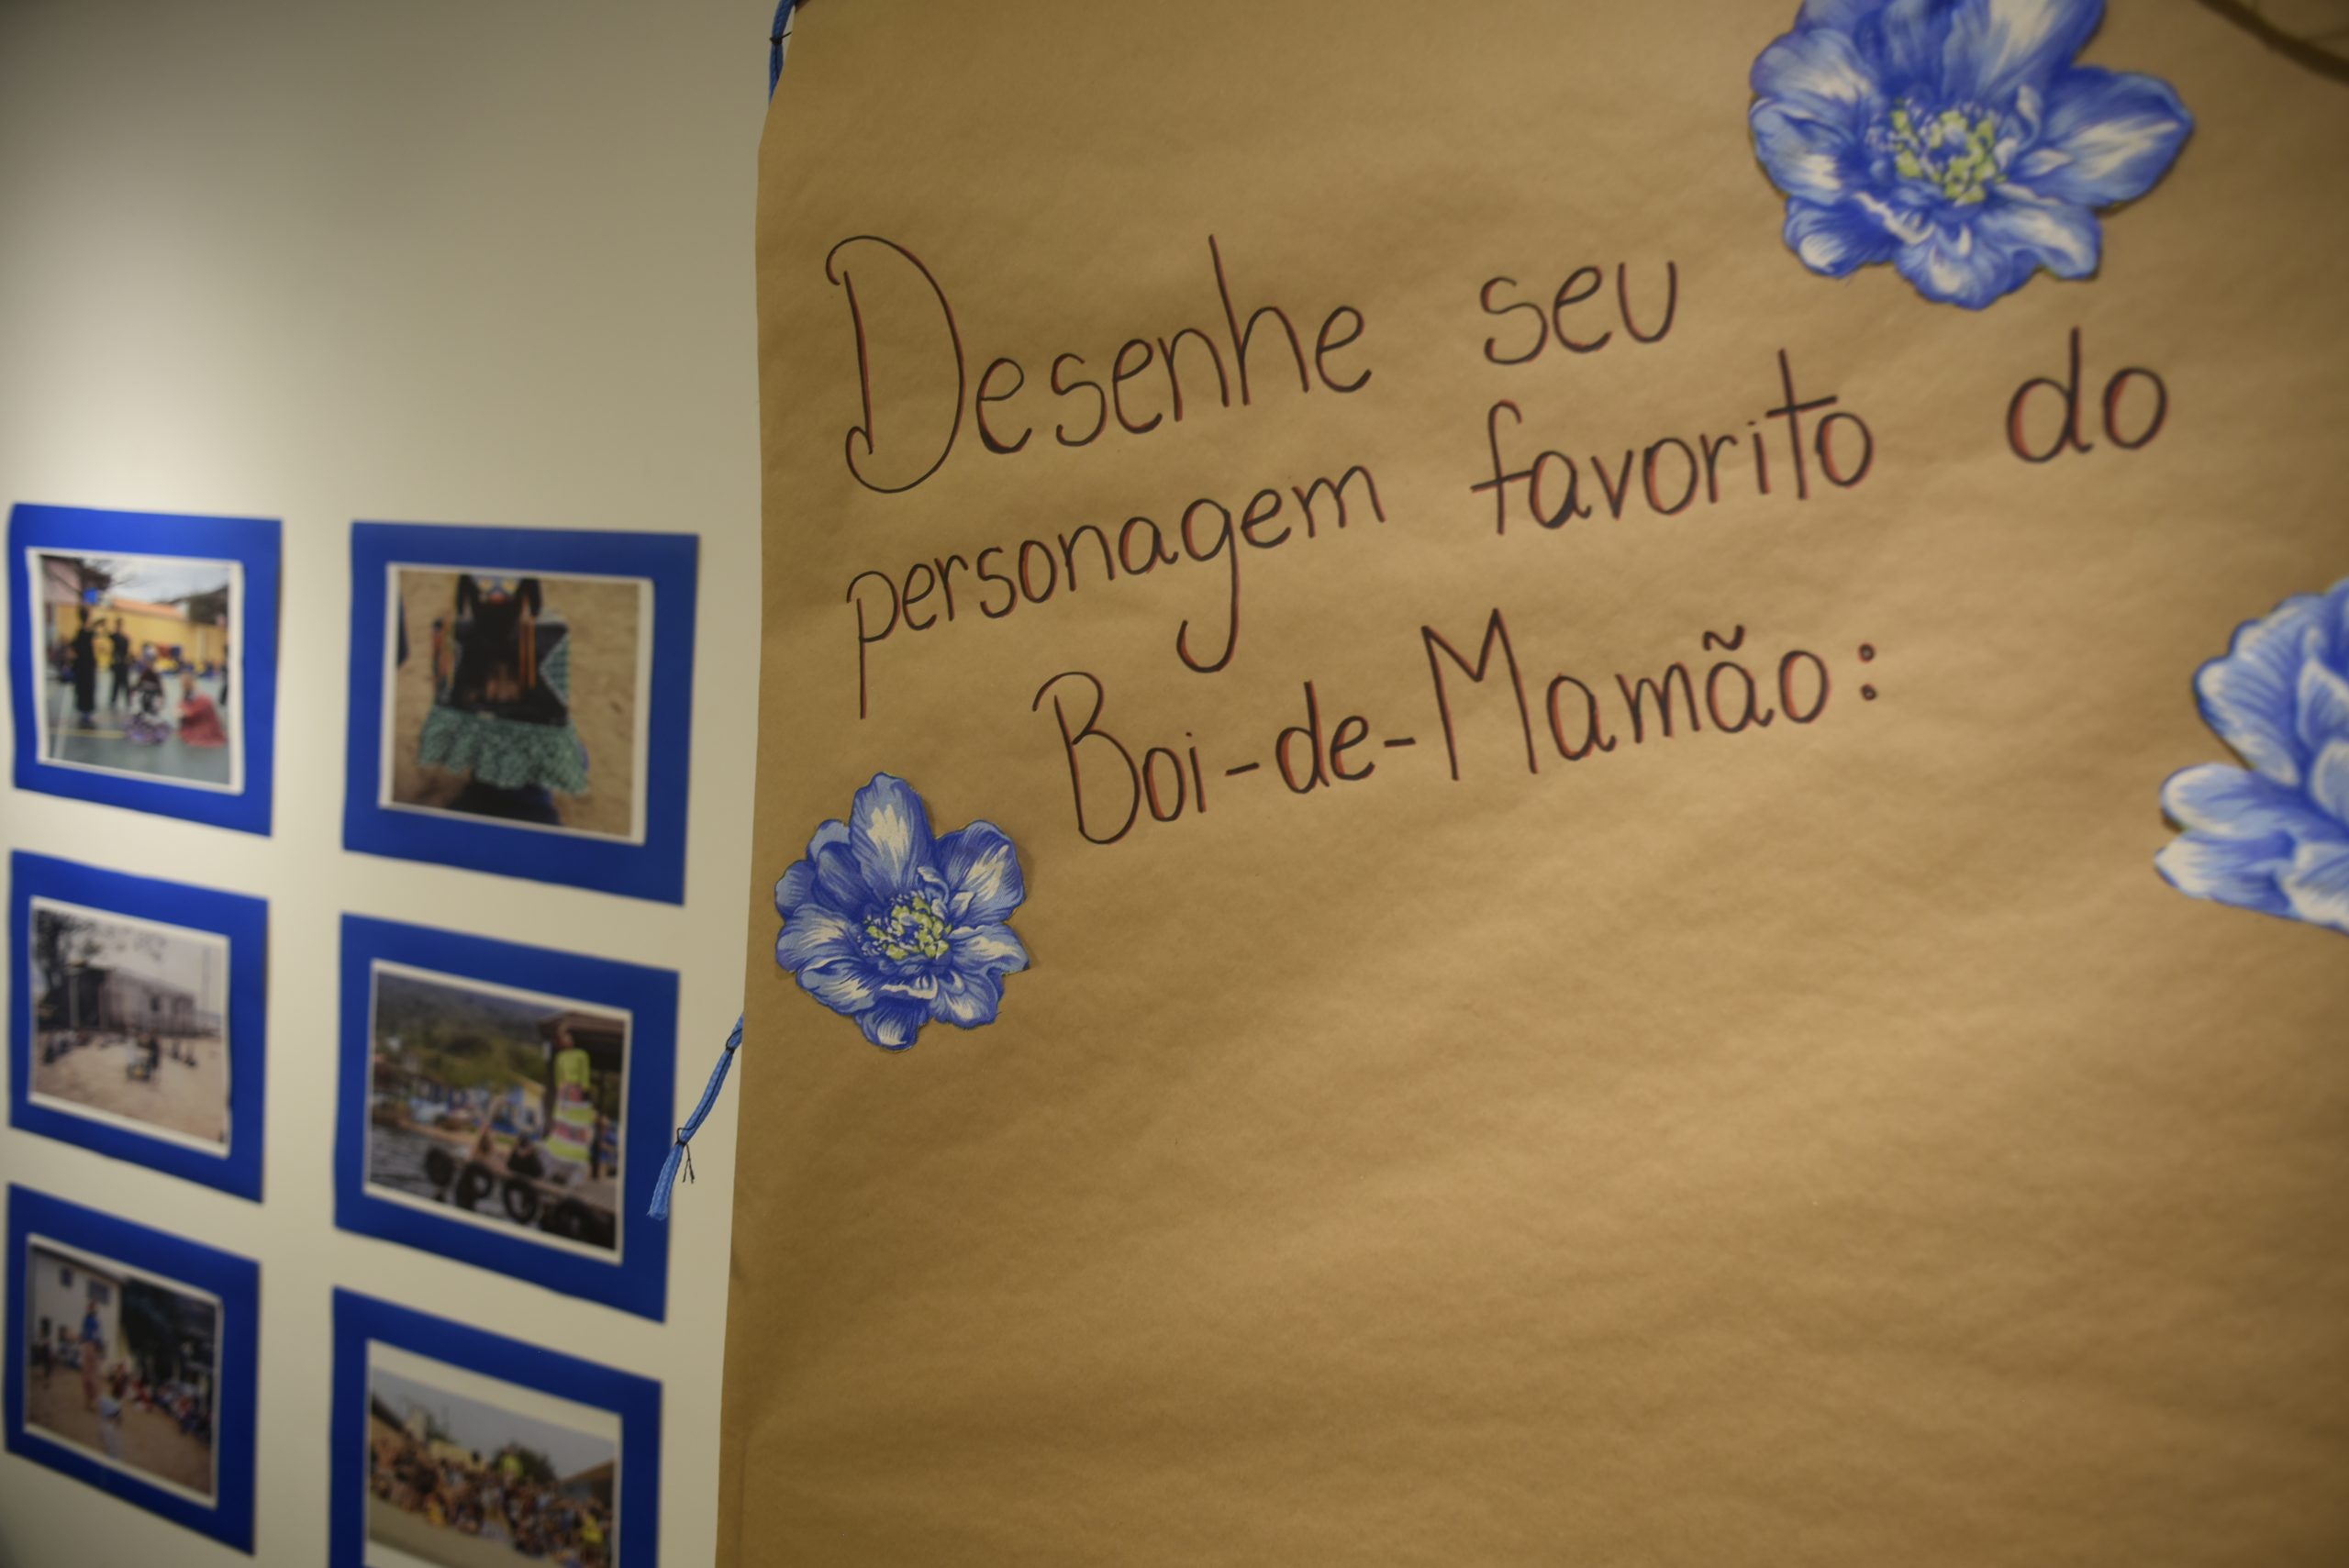 Desenhe seu
personagem favorito do
Boi-de-Mamão: